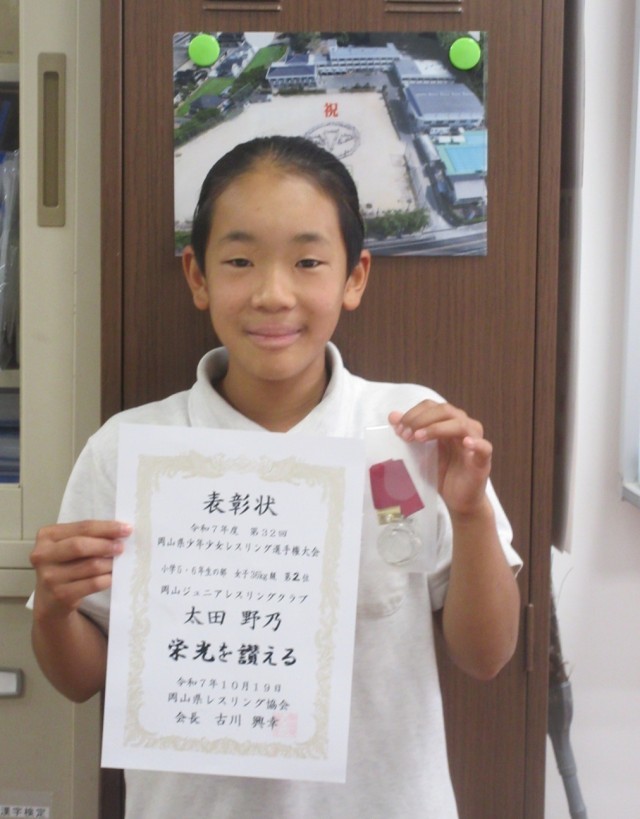 祝
表彰状
令和7年度 第32回
岡山県少年少女レスリング選手権大会
小学5・6年生の部 女子36kg級 第2位
岡山ジュニアレスリングクラブ
太田 野乃
栄光を讃える
令和7年10月19日
岡山県レスリング協会
会長 古川 興幸
漢字検定